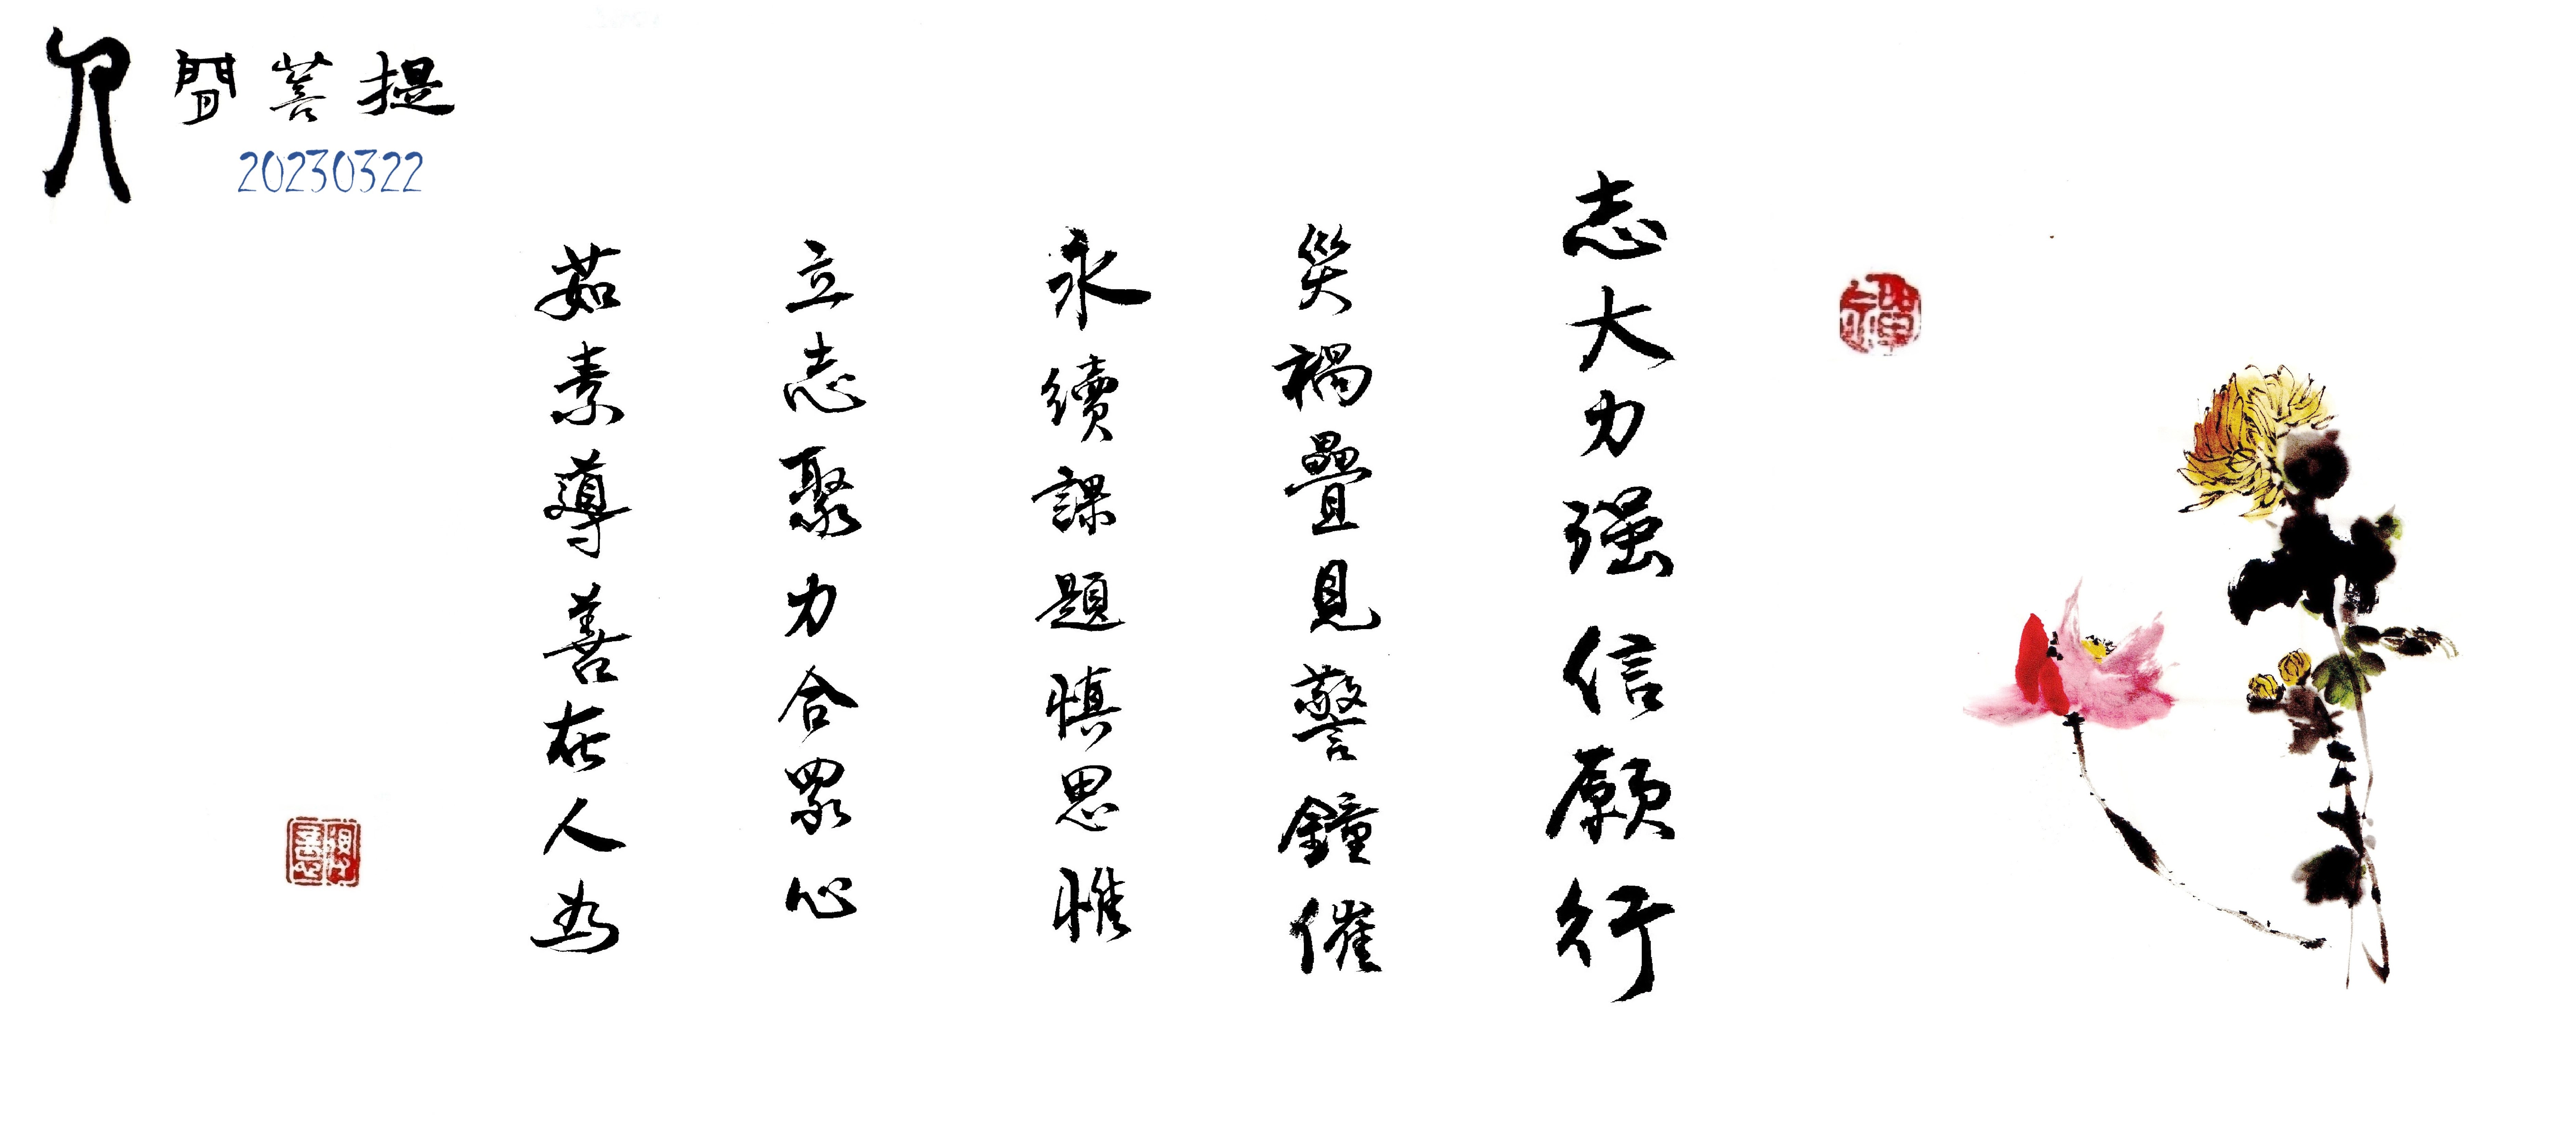 人間菩提
20230322
志大力强信願行
災禍疊見警鐘催
永續課題慎思惟
立志聚力合眾心
茹素導善在人為